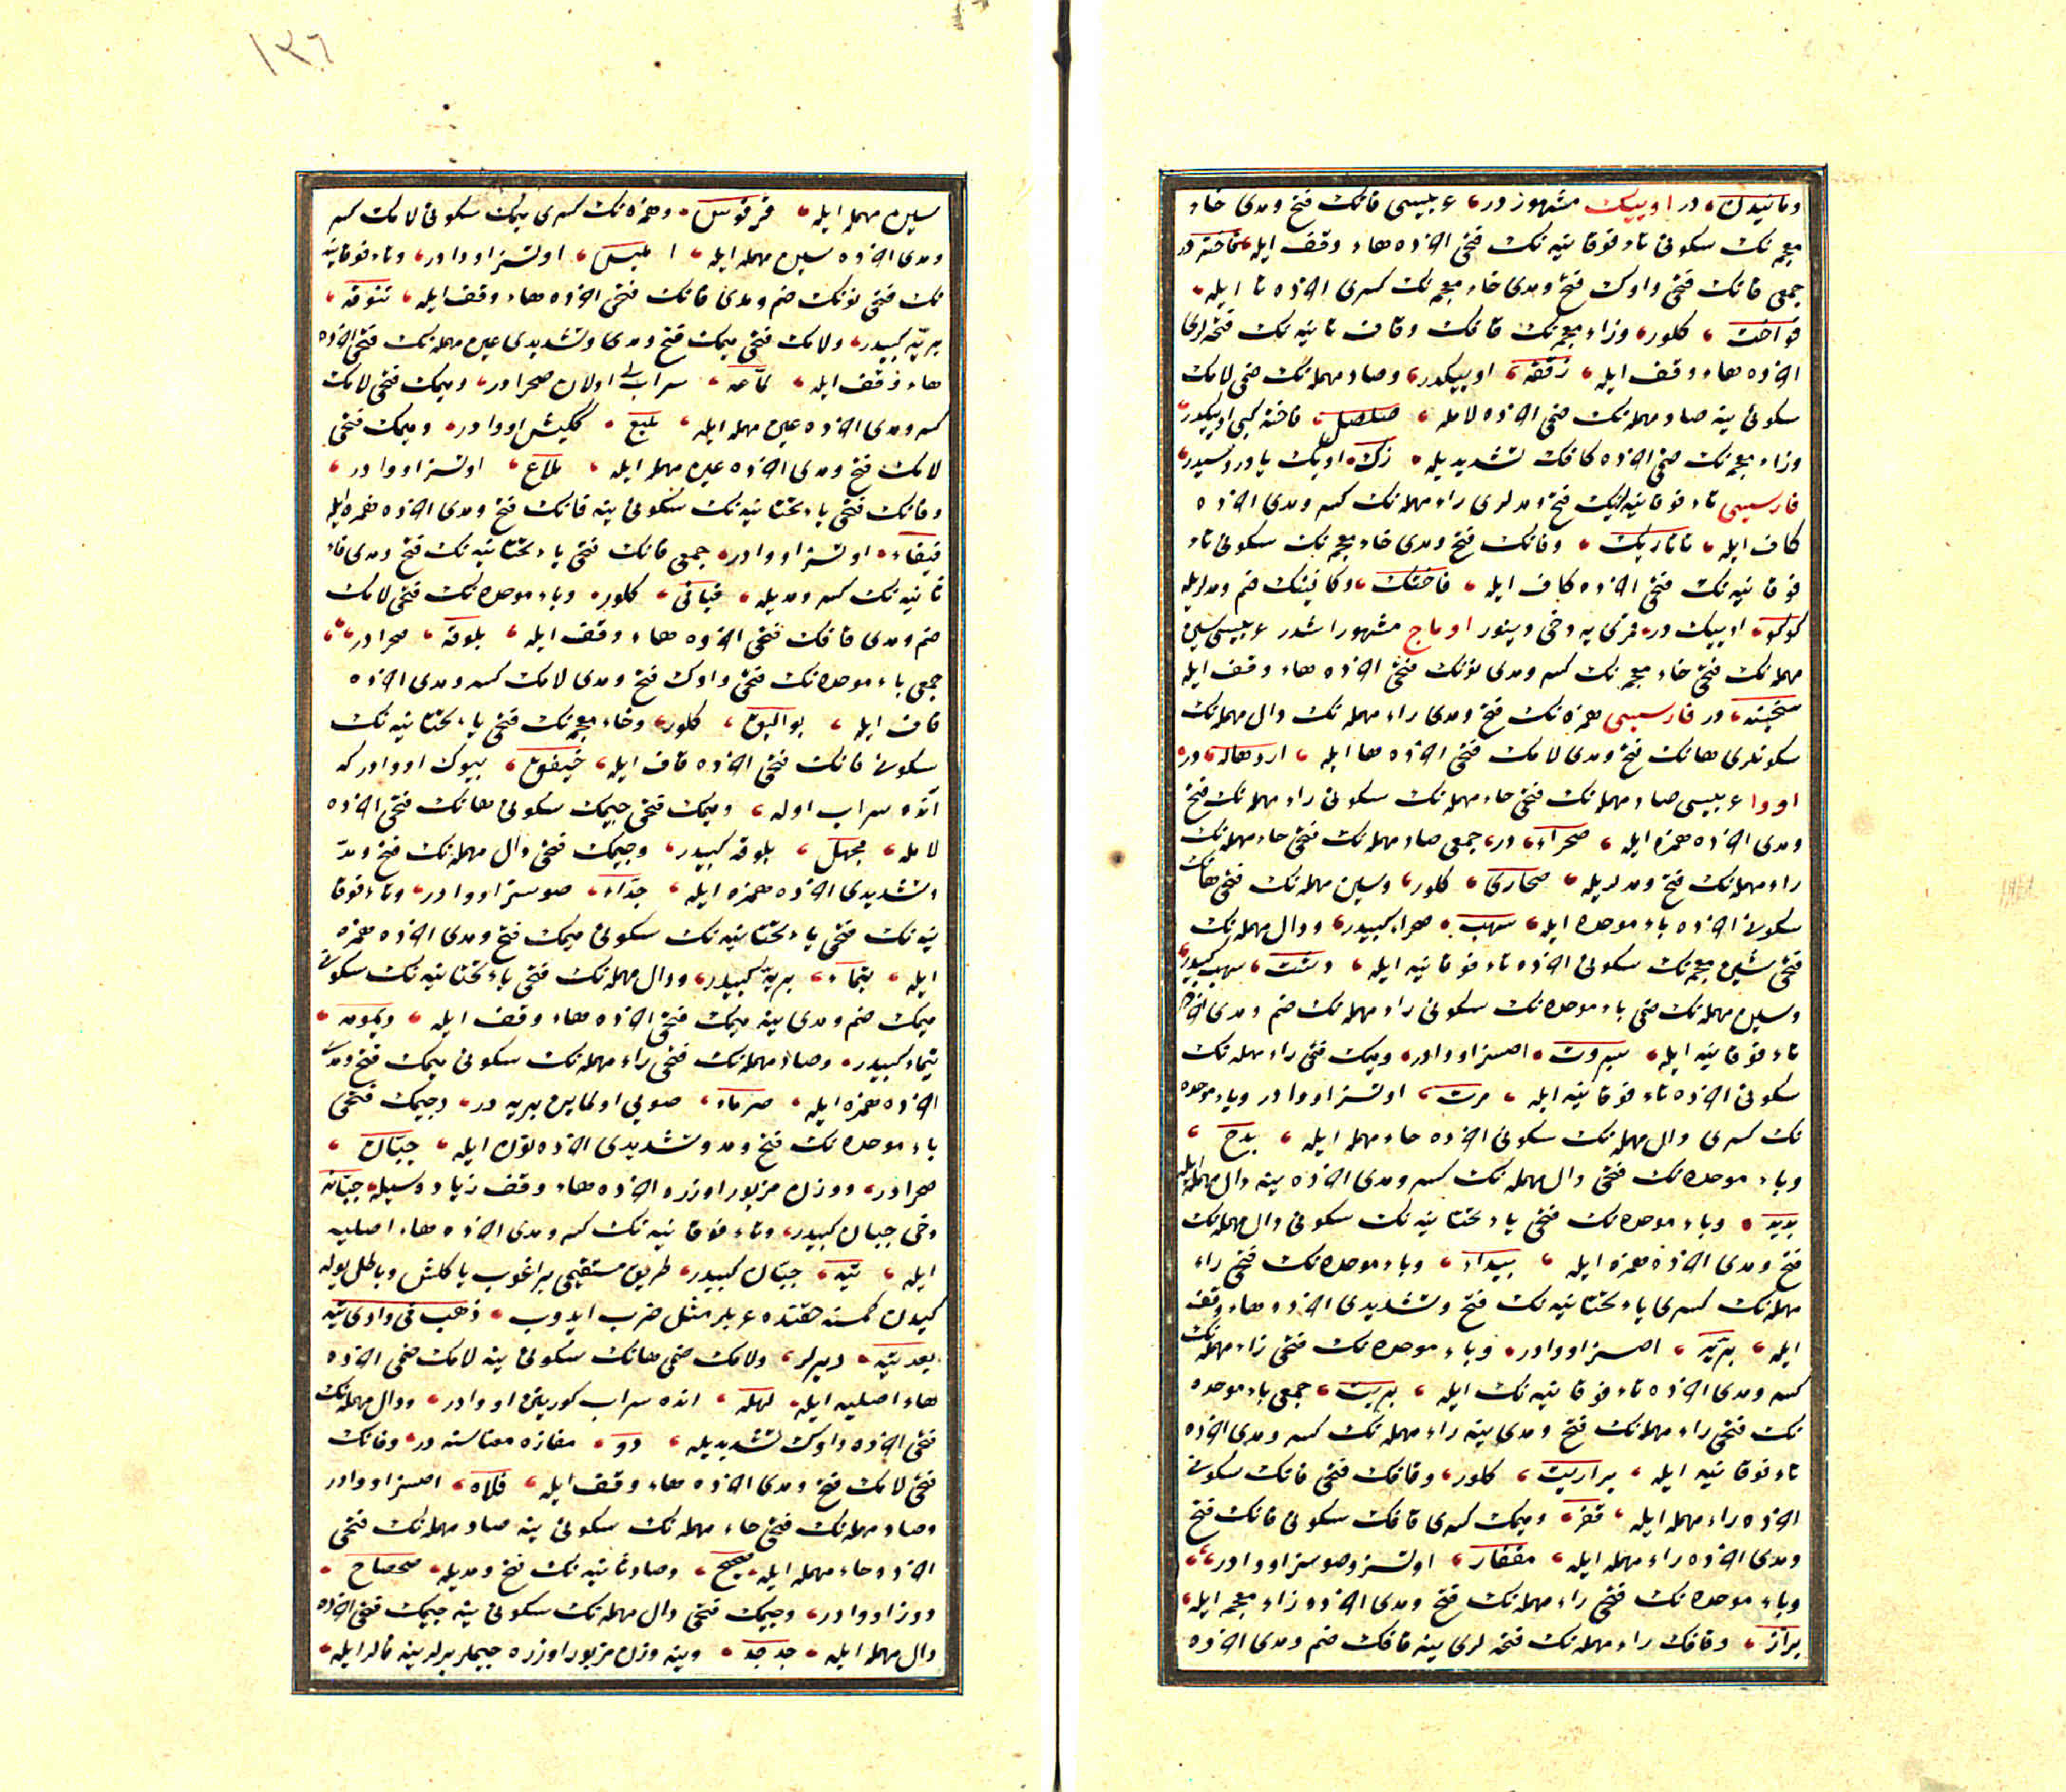 در اوییک مشهوزدر عربیسی فانک فتح و مدی خاء
معجمه نک سکونی تاء فوقانیه نک فتحی اخرده هاء وقف ایله فاخته در
جمعی فانک فتحی واوک فتح و مدی خاء معجمه نک کسری اخرده تا ایله
فواخت کلور وزاء معجمه نک قافک وقاف ثانیه نک فتحه لری
اخرده هاء وقف ایله زقفه اوییکدر وصاد مهمله نک ضمی لامک
سکونی ینه صاد مهمله نک ضمی اخرده لامله صلصل فاخته کبی اوییکدر
وزاء معجمه نک ضمی اخرده کافک تشدیدیله زک اوییک یاوروسیدر
فارسیسی تاء فوقانیه لرینک فتح و مدلری راء مهمله نک کسر و مدی اخرده
کاف ایله تاتاریک وفانک فتح و مدی خاء معجمه نک سکونی تاء
فوقانیه نک فتحی اخرده کاف ایله فاختک وکافینک ضم و مدلریله
کوکو اوییک در قمری یه دخی دینور اوماج مشهور اشدر عربیسی سین
مهمله نک فتحی خاء معجمه نک کسر و مدی نونک فتحی اخرده هاء وقف ایله
سخینه در فارسیسی همزه نک فتح و مدی راء مهمله نک دال مهمله نک
سکونلری هانک فتح و مدی لامک فتحی اخرده ها ایله اردهاله در
اووا عربیسی صاد مهمله نک فتحی حاء مهمله نک سکونی راء مهمله نک فتح
و مدی اخرده همزه ایله صحراء در جمعی صاد مهمله نک فتحی حاء مهمله نک
راء مهمله نک فتح و مدلریله صحاری کلور وسین مهمله نک فتحی هانک
سکونی اخرده باء موحده ایله سهب صحرا کبیدر ودال مهمله نک
فتحی شین معجمه نک سکونی اخرده تاء فوقانیه ایله دشت سهب کبیدر
وسین مهمله نک ضمی باء موحده نک سکونی راء مهمله نک ضم و مدی اخرده
تاء فوقانیه ایله سبروت اصسز اووادر ومیمک فتحی راء مهمله نک
سکونی اخرده تاء فوقانیه ایله مرت اوتسز اووادر وباء موحده
نک کسری دال مهمله نک سکونی اخرده حاء مهمله ایله بدح
وباء موحده نک فتحی دال مهمله نک کسر و مدی اخرده ینه دال مهمله ایله
بدید وباء موحده نک فتحی یاء تحتانیه نک سکونی دال مهمله نک
فتح و مدی اخرده همزه ایله بیداء وباء موحده نک فتحی راء
مهمله نک کسری یاء تحتانیه نک فتح و تشدیدی اخرده هاء وقف
ایله بریه اصسز اووادر وباء موحده نک فتحی راء مهمله نک
کسر و مدی اخرده تاء فوقانیه نک ایله بریت جمعی باء موحده
نک فتحی راء مهمله نک فتح و مدی ینه راء مهمله نک کسر و مدی اخرده
تاء فوقانیه ایله براریت کلور وقافک فتحی فانک سکونی
اخرده راء مهمله ایله قفر ومیمک کسری قافک سکونی فانک فتح
و مدی اخرده راء مهمله ایله مقفار اوتسز وصوسز اووادر
وباء موحده نک فتحی راء مهمله نک فتح و مدی اخرده زاء معجمه ایله
براز وقافک راء مهمله نک فتحه لری ینه قافک ضم و مدی اخرده
١٣٦
سین مهمله ایله قرقوس وهمزه نک کسری میمک سکونی لامک کسر
و مدی اخرده سین مهمله ایله املیس اوتسز اووادر وتاء فوقانیه
نک فتحی نونک ضم و مدی قافک فتحی اخرده هاء وقف ایله تنوقه
بریه کبیدر ولامک فتحی میمک فتح و مدی و تشدیدی عین مهمله نک فتحی اخرده
هاء وقف ایله لماعه سرابلی اولان صحرادر ومیمک فتحی لامک
کسر و مدی اخرده عین مهمله ایله ملیع کنیش اووادر ومیمک فتحی
لامک فتح و مدی اخرده عین مهمله ایله ملاع اوتسز اووادر
وفانک فتحی یاء تحتانیه نک سکونی ینه فانک فتح و مدی اخرده همزه ایله
فیفاء اوتسز اووادر جمعی فانک فتحی یاء تحتانیه نک فتح و مدی فاء
ثانیه نک کسر و مدیله فیافی کلور وباء موحده نک فتحی لامک
ضم و مدی قافک فتحی اخرده هاء وقف ایله بلوقه صحرادر
جمعی باء موحده نک فتحی واوک فتح و مدی لامک کسر و مدی اخرده
قاف ایله بوالیق کلور وخاء معجمه نک فتحی یاء تحتانیه نک
سکونی فانک فتحی اخرده قاف ایله خیفق بیوک اووادر که
آنده سراب اوله ومیمک فتحی جیمک سکونی هانک فتحی اخرده
لامله مجهل بلوقه کبیدر وجیمک فتحی دال مهمله نک فتح و مد
و تشدیدی اخرده همزه ایله جداء صوسز اووادر وتاء فوقا
نیه نک فتحی یاء تحتانیه نک سکونی میمک فتح و مدی اخرده همزه
ایله تیماء بریه کبیدر ودال مهمله نک فتحی یاء تحتانیه نک سکونی
میمک ضم و مدی ینه میمک فتحی اخرده هاء وقف ایله دیمومه
تیماء کبیدر وصاد مهمله نک فتحی راء مهمله نک سکونی میمک فتح و مدی
اخرده همزه ایله صرماء صویی اولماین بریه در وجیمک فتحی
باء موحده نک فتح و مد و تشدیدی اخرده نون ایله جبان
صحرادر ووزن مزبور اوزره اخرده هاء وقف زیادسیله جبانه
دخی جبان کبیدر وتاء فوقانیه نک کسر و مدی اخرده هاء اصلیه
ایله تیه جبان کبیدر طریق مستقیمی براغوب یاکلش وباطل یوله
کیدن کمسنه حقنده عربلر مثل ضرب ایدوب ذهب فی وادی تیه
بعد تیه دیرلر ولامک ضمی هانک سکونی ینه لامک ضمی اخرده
هاء اصلیه ایله لهله انده سراب کورینن اووادر ودال مهمله نک
فتحی اخرده واوک تشدیدیله دو مفازه معناسنه در وفانک
فتحی لامک فتح و مدی اخرده هاء وقف ایله فلاه اصسز اووادر
وصاد مهمله نک فتحی حاء مهمله نک سکونی ینه صاد مهمله نک فتحی
اخرده حاء مهمله ایله صحصح وصاد ثانیه نک فتح و مدیله صحصاح
دوز اووادر وجیمک فتحی دال مهمله نک سکونی ینه جیمک فتحی اخرده
دال مهمله ایله جدجد وینه وزن مزبور اوزره جیملر یرلرینه فالر ایله